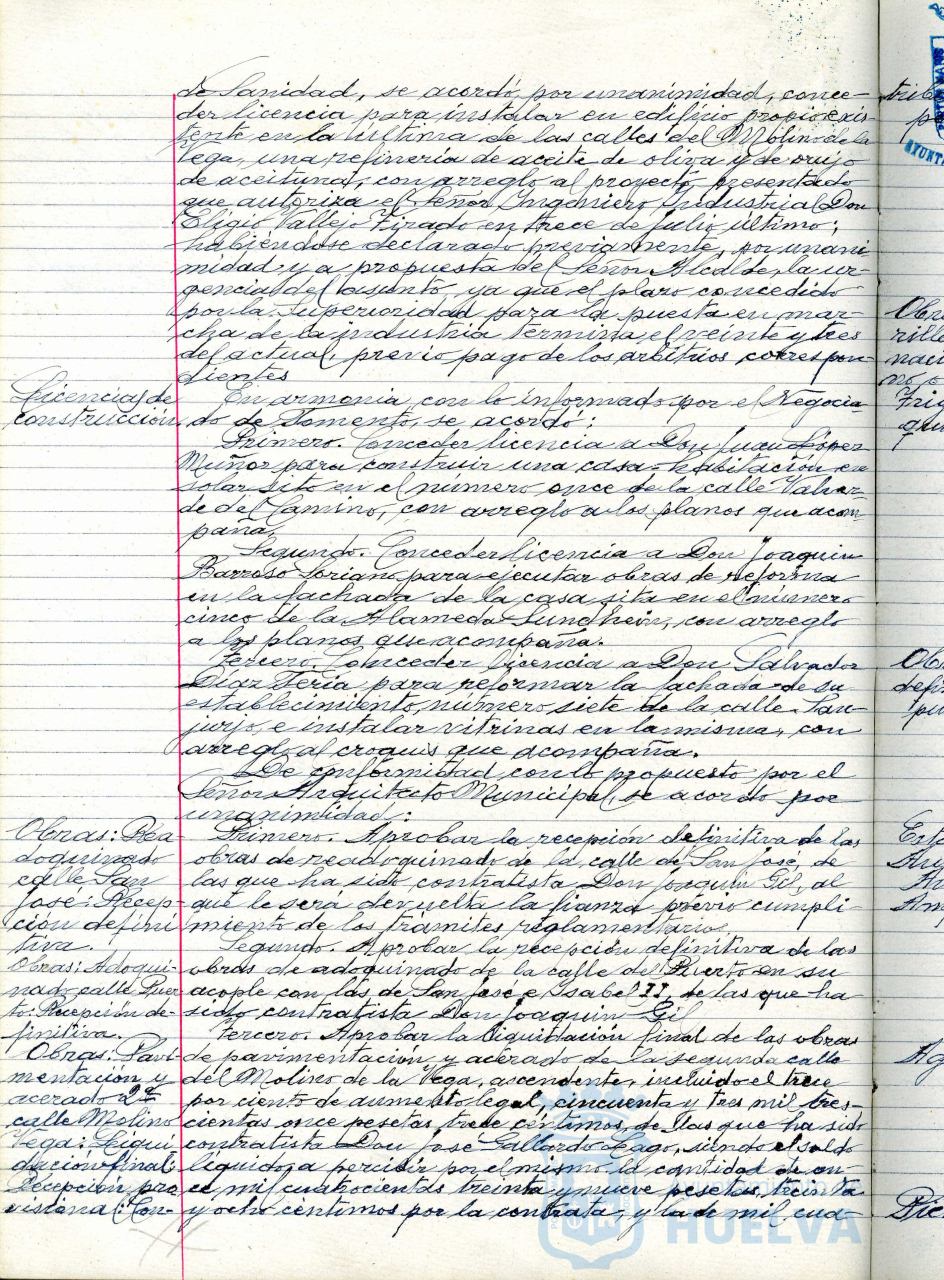 de Sanidad, se acordó, por unanimidad, conce-
der licencia para instalar en edificio propio exis-
tente en la última de las calles del Molino de la
Vega, una refinería de aceite de oliva y de orujo
de aceituna, con arreglo al proyecto presentado
que autoriza el Señor Ingeniero Industrial Don
Eligio Vallejo Tirado en trece de julio último;
habiéndose declarado previamente, por unani
midad y a propuesta del Señor Alcalde, la ur-
gencia del asunto, ya que el plazo concedido
por la Superioridad para la puesta en mar-
cha de la industria termina el veinte y tres
del actual, previo pago de los arbitrios correspon-
dientes
Licencias de
construcción
En armonía con lo informado por el Negocia-
do de Fomento, se acordó:
Primero. Conceder licencia a Don Juan López
Muñoz para construir una casa-habitación en
solar sito en el número once de la calle Valver-
de del Camino, con arreglo a los planos que acom-
paña.
Segundo. Conceder licencia a Don Joaquín
Barroso Soriano para ejecutar obras de reforma
en la fachada de la casa sita en el número
cinco de la Alameda Sundheim, con arreglo
a los planos que acompaña.
Tercero. Conceder licencia a Don Salvador
Díaz Feria para reformar la fachada de su
establecimiento, número siete de la calle San-
jurjo, e instalar vitrinas en la misma, con
arreglo al croquis que acompaña.
De conformidad con lo propuesto por el
Señor Arquitecto Municipal, se acordó por
unanimidad:
Obras: Rea-
doquinado
calle San
José: Recep-
ción defini
tiva.
Primero. Aprobar la recepción definitiva de las
obras de readoquinado de la calle de San José, de
las que ha sido contratista Don Joaquín Gil, al
que le será devuelta la fianza previo cumpli-
miento de los trámites reglamentarios.
Obras: Adoqui-
nado calle Puer
to: Recepción de-
finitiva.
Segundo. Aprobar la recepción definitiva de las
obras de adoquinado de la calle del Puerto en su
acople con las de San José e Isabel II, de las que ha
sido contratista Don Joaquín Gil.
Obras: Pavi
mentación y
acerado 2ª
calle Molino
Vega: Liqui
dación final:
Recepción pro
visional: Con-
Tercero. Aprobar la liquidación final de las obras
de pavimentación y acerado de la segunda calle
del Molino de la Vega, ascendente, incluido el trece
por ciento de aumento legal, cincuenta y tres mil tres-
cientas once pesetas, trece céntimos, de las que ha sido
contratista Don José Gallardo Lago, siendo el saldo
líquido, a percibir por el mismo, la cantidad de on-
ce mil cuatrocientas treinta y nueve pesetas, treinta
y ocho céntimos por la contrata, y la de mil cua-
HUELVA